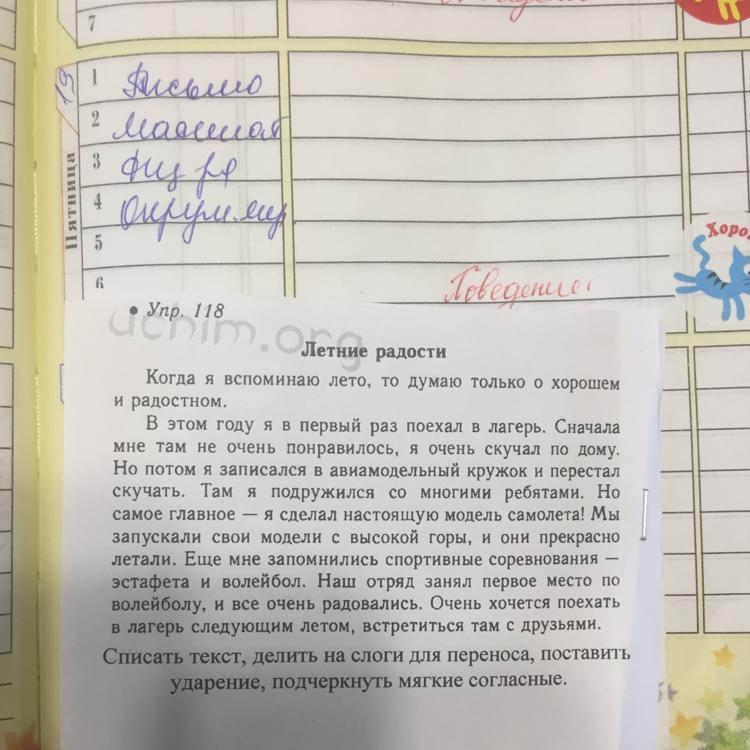 7
19
Пятница
1 Письмо
2
3 Физ ра
4 Окруж.мир.
5
Хоро
6
Поведение:
• Упр. 118
uchim.org
Летние радости
Когда я вспоминаю лето, то думаю только о хорошем
и радостном.
В этом году я в первый раз поехал в лагерь. Сначала
мне там не очень понравилось, я очень скучал по дому.
Но потом я записался в авиамодельный кружок и перестал
скучать. Там я подружился со многими ребятами. Но
самое главное — я сделал настоящую модель самолета! Мы
запускали свои модели с высокой горы, и они прекрасно
летали. Еще мне запомнились спортивные соревнования —
эстафета и волейбол. Наш отряд занял первое место по
волейболу, и все очень радовались. Очень хочется поехать
в лагерь следующим летом, встретиться там с друзьями.
Списать текст, делить на слоги для переноса, поставить
ударение, подчеркнуть мягкие согласные.